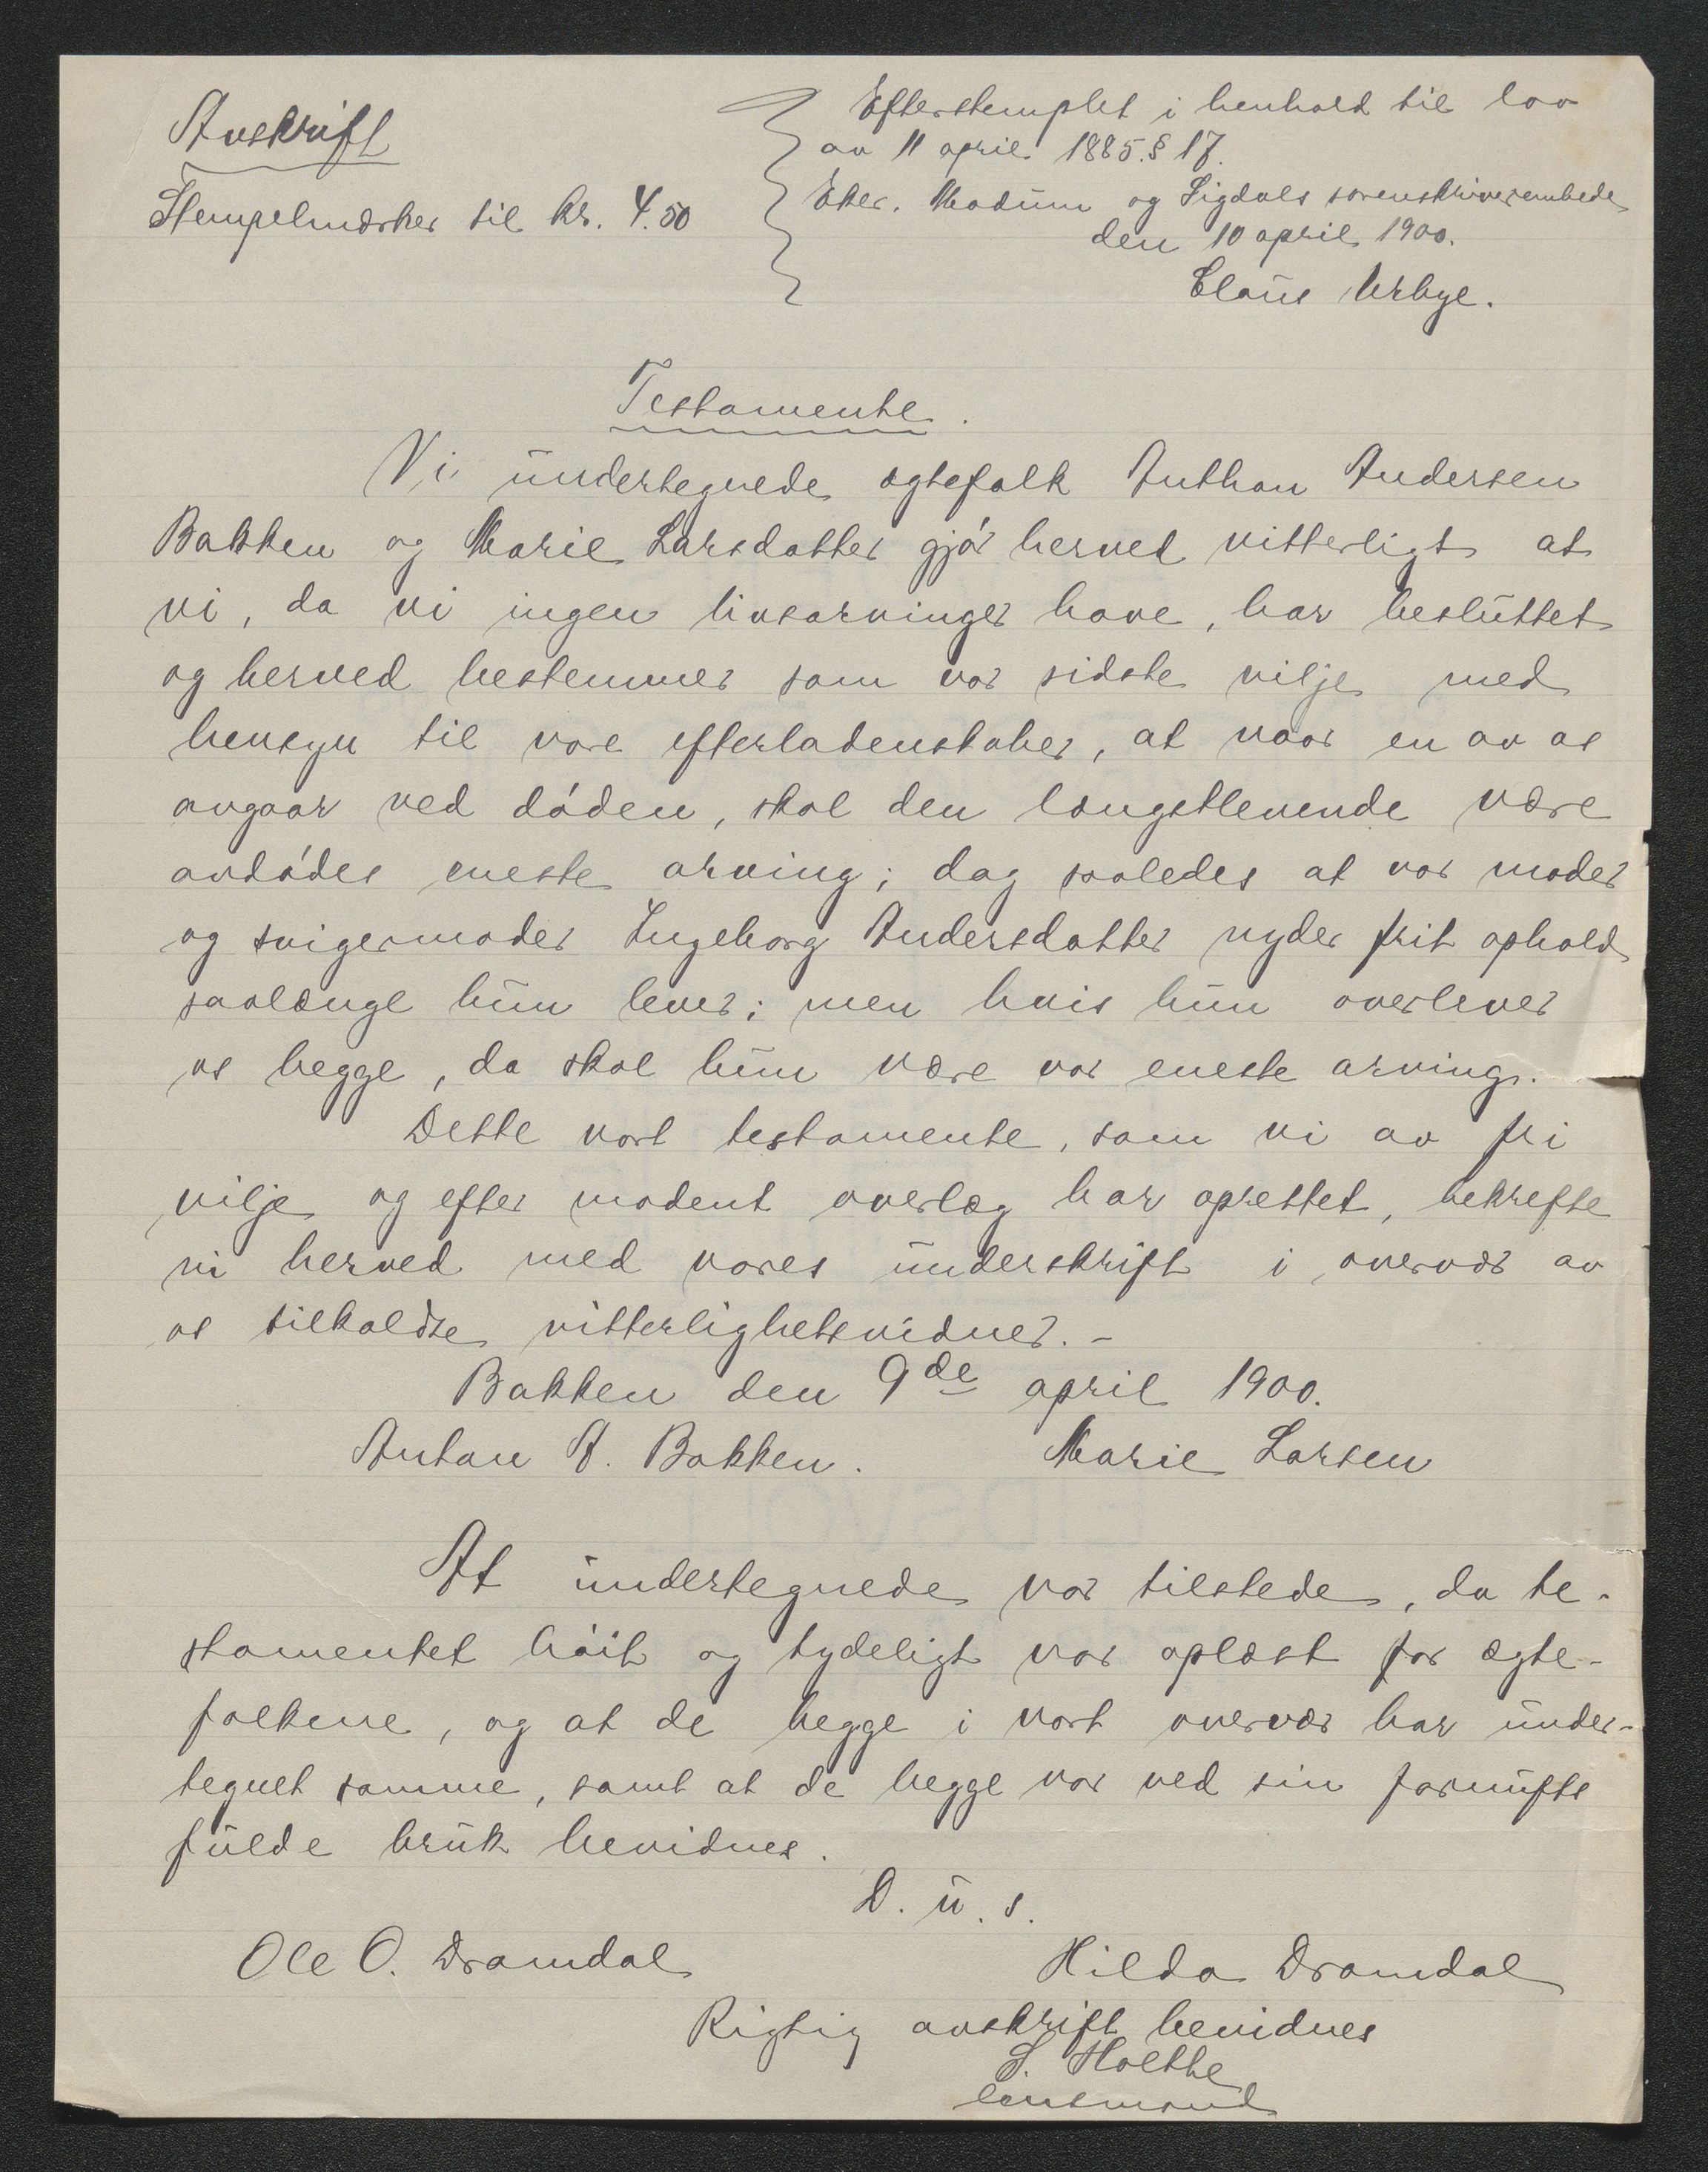 Avskrift
Stempelmærker til kr. 4.50
Efterstemplet i henhold til lov
av 11 april 1885. § 17.
Eker, Modum og Sigdals sorenskriverembede
den 10 april 1900.
Claus Urbye.
Testamente.
Vi undertegnede ægtefolk Anthon Andersen
Bakken og Marie Larsdatter gjør herved vitterligt at
vi, da vi ingen livsarvinger have, har besluttet
og herved bestemmer som vor sidste vilje med
hensyn til vore efterladenskaber, at naar en av os
avgaar ved døden, skal den længstlevende være
avdødes eneste arving; dog saaledes at vor moder
og svigermoder Ingeborg Andersdatter nyder frit ophold
saalænge hun lever; men hvis hun overlever
os begge, da skal hun være vor eneste arving.
Dette vort testamente, som vi av fri
vilje og efter modent overlæg har oprettet, bekrefte
vi herved med vores underskrift i overvær av
os tilkaldte vitterlighetsvidner. -
Bakken den 9de april 1900.
Anton A. Bakken. Marie Larsen
At undertegnede var tilstede, da te-
stamentet høit og tydeligt var oplæst for ægte-
folkene, og at de begge i vort overvær har under-
tegnet samme, samt at de begge var ved sin fornufts
fulde bruk bevidnes.
D. u. s.
Ole O. Dramdal Hilda Dramdal
Rigtig avskrift bevidnes
S. Holthe
lensmand